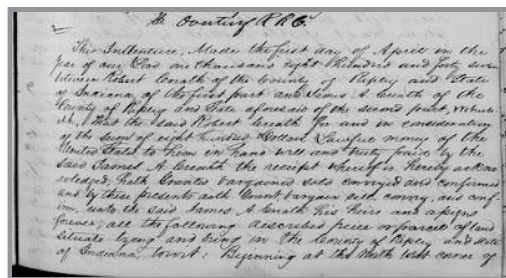 R R Co.
This Indenture, Made the first day of April in the
Year of our Lord one thousand eight Hundred and forty seven
between Robert Creath of the County of Ripley and State
of Indiana, of the first part and James A Creath of the
County of Ripley and State aforesaid of the second part, Witness
eth, That the said Robert Creath for and in consideration
of the sum of eight hundred Dollars Lawful money of the
United State to him in hand well and truly paid by the
said James A. Creath the receipt whereof is hereby ackno
wledged, hath Granted bargained sold conveyed and confirmed
and by these presents doth Grant, bargain sell, convey, and conf
irm, unto the said James A Creath his heirs and assigns
forever, all the following described piece or parcel of land
situate lying and being in the County of Ripley and State
of Indiana, towit: Beginning at the North West corner of